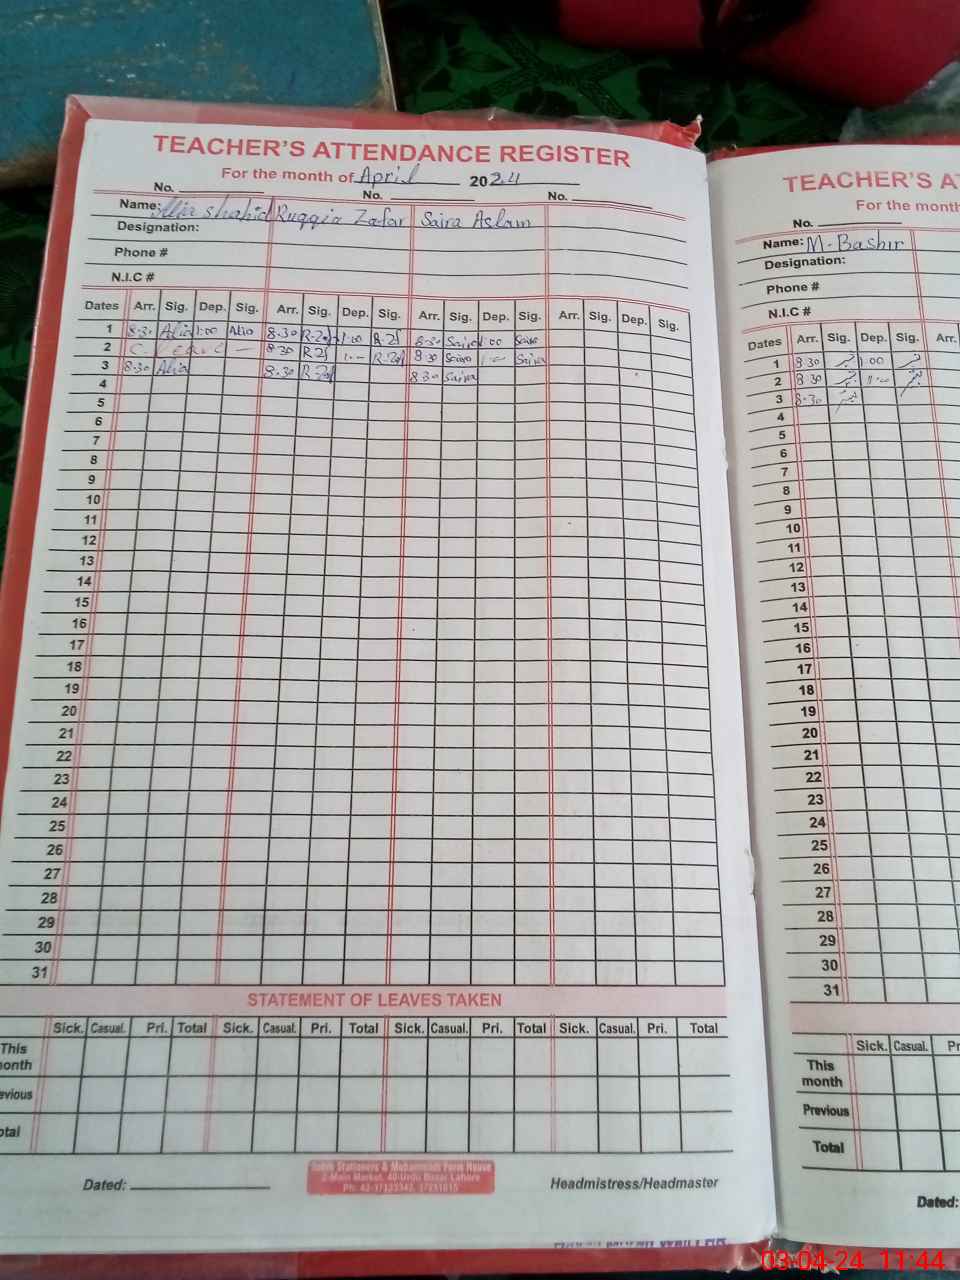 TEACHER'S ATTENDANCE REGISTER
For the month of April 2024
No. No. No.
Name: Alia Shahid Ruqqia Zafar Saira Aslam
Designation:
Phone #
N.I.C #
Dates Arr. Sig. Dep. Sig. Arr. Sig. Dep. Sig. Arr. Sig. Dep. Sig. Arr. Sig. Dep. Sig.
1 8-30 Alia 1:00 Alia 8-30 1:00 8-30 Saira 1:00 Saira
2 C. Leave — 8:30 1:- 8:30 Saira 1:- Saira
3 8:30 Alia 8:30 8:30 Saira
4
5
6
7
8
9
10
11
12
13
14
15
16
17
18
19
20
21
22
23
24
25
26
27
28
29
30
31
STATEMENT OF LEAVES TAKEN
Sick. Casual. Pri. Total Sick. Casual. Pri. Total Sick. Casual. Pri. Total Sick. Casual. Pri. Total
This
onth
evious
otal
Dated: Headmistress/Headmaster
Stationers & Mohammadi Form House
2-Main Market, 40-Urdu Bazar Lahore
TEACHER'S AT
For the month
No.
Name: M. Bashir
Designation:
Phone #
N.I.C #
Dates Arr. Sig. Dep. Sig. Arr.
1 8 30 1:00
2 8 30 1:-
3 8-30
4
5
6
7
8
9
10
11
12
13
14
15
16
17
18
19
20
21
22
23
24
25
26
27
28
29
30
31
Sick. Casual. Pr
This
month
Previous
Total
Dated:
03-04-24 11:44